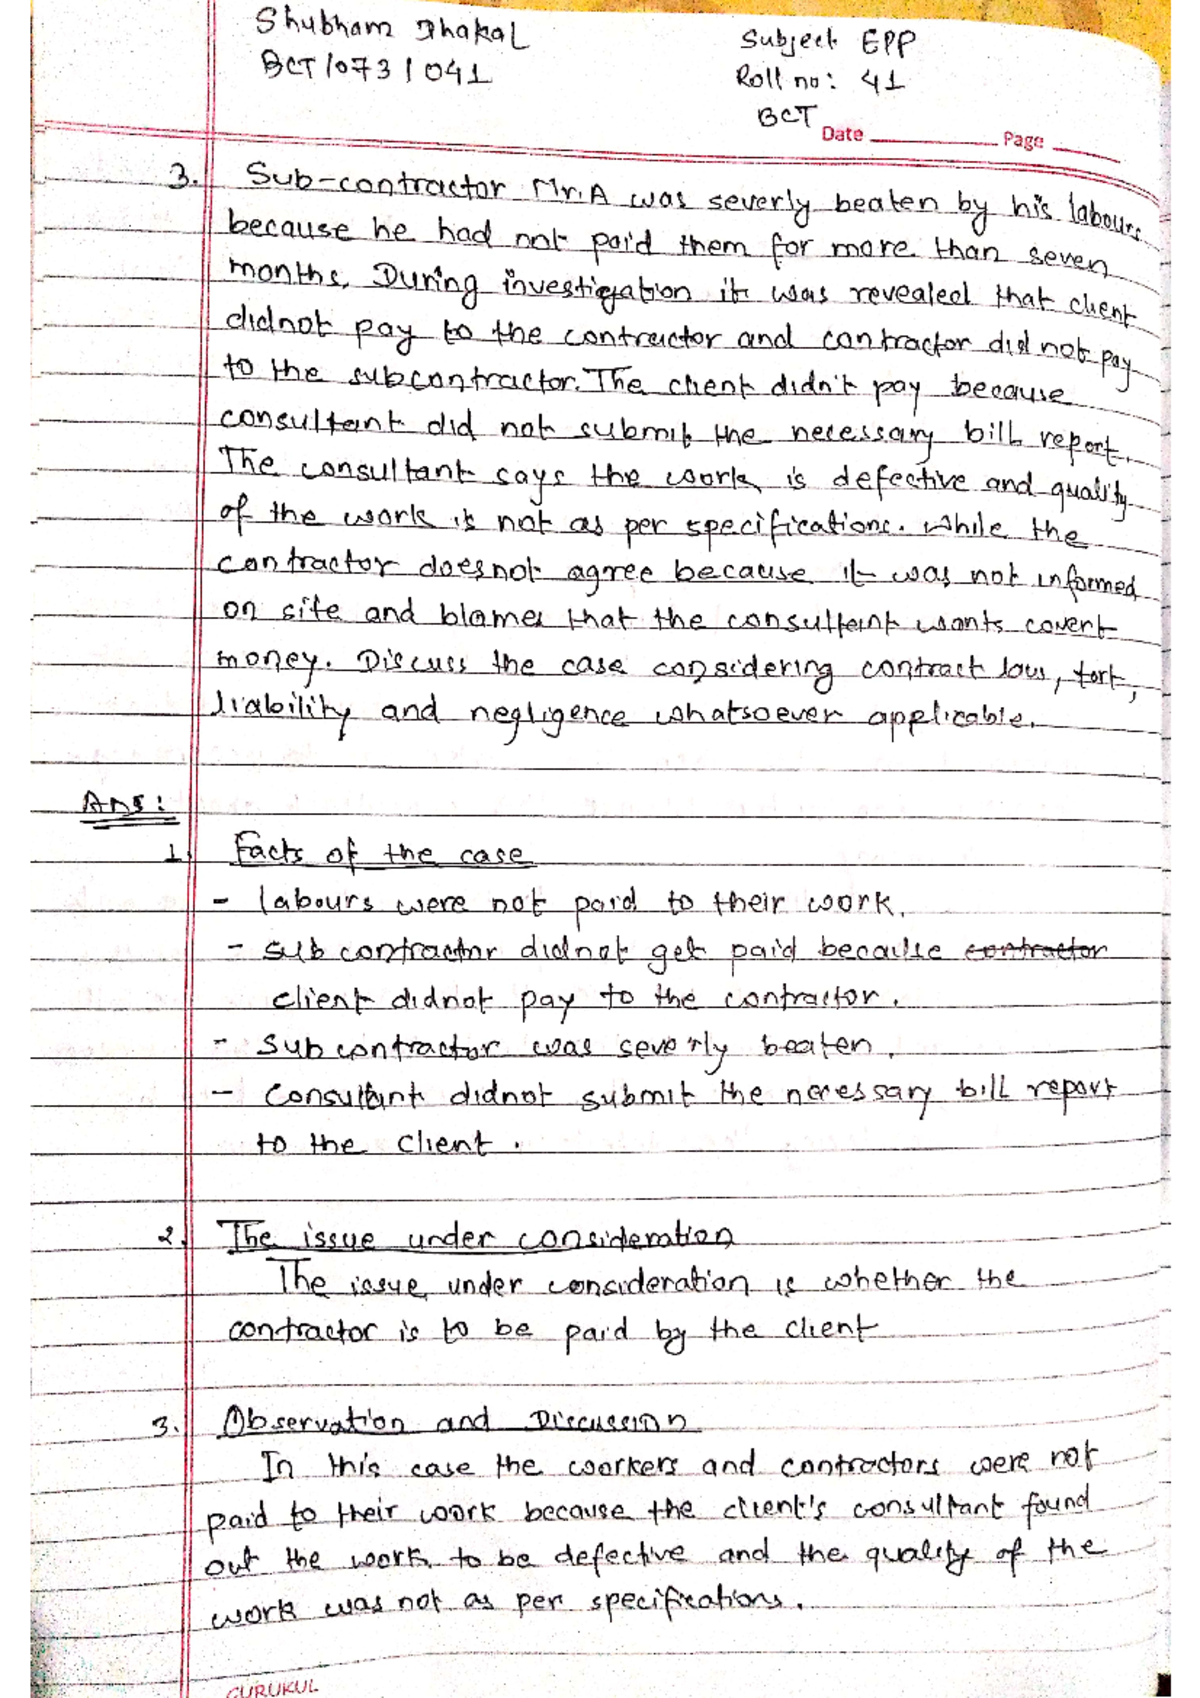 Shubham Dhakal
Subject EPP
BCT/073/041
Roll no: 41
BCT
Date Page
3. Sub-contractor Mr.A was severly beaten by his labours
because he had not paid them for more than seven
months. During investigation it was revealed that client
didnot pay to the contractor and contractor did not pay
to the subcontractor. The client didn't pay because
consultant did not submit the necessary bill report.
The consultant says the work is defective and quality
of the work is not as per specifications. While the
contractor doesnot agree because it was not informed
on site and blames that the consultant wants covert
money. Discuss the case considering contract law, tort,
liability and negligence whatsoever applicable.
Ans:
1. Facts of the case
- labours were not paid to their work.
- sub contractor didnot get paid because contractor
client didnot pay to the contractor.
- Subcontractor was severly beaten.
- Consultant didnot submit the necessary bill report
to the client.
2. The issue under consideration
The issue under consideration is whether the
contractor is to be paid by the client
3. Observation and Discussion
In this case the workers and contractors were not
paid to their work because the client's consultant found
out the work to be defective and the quality of the
work was not as per specifications.
GURUKUL